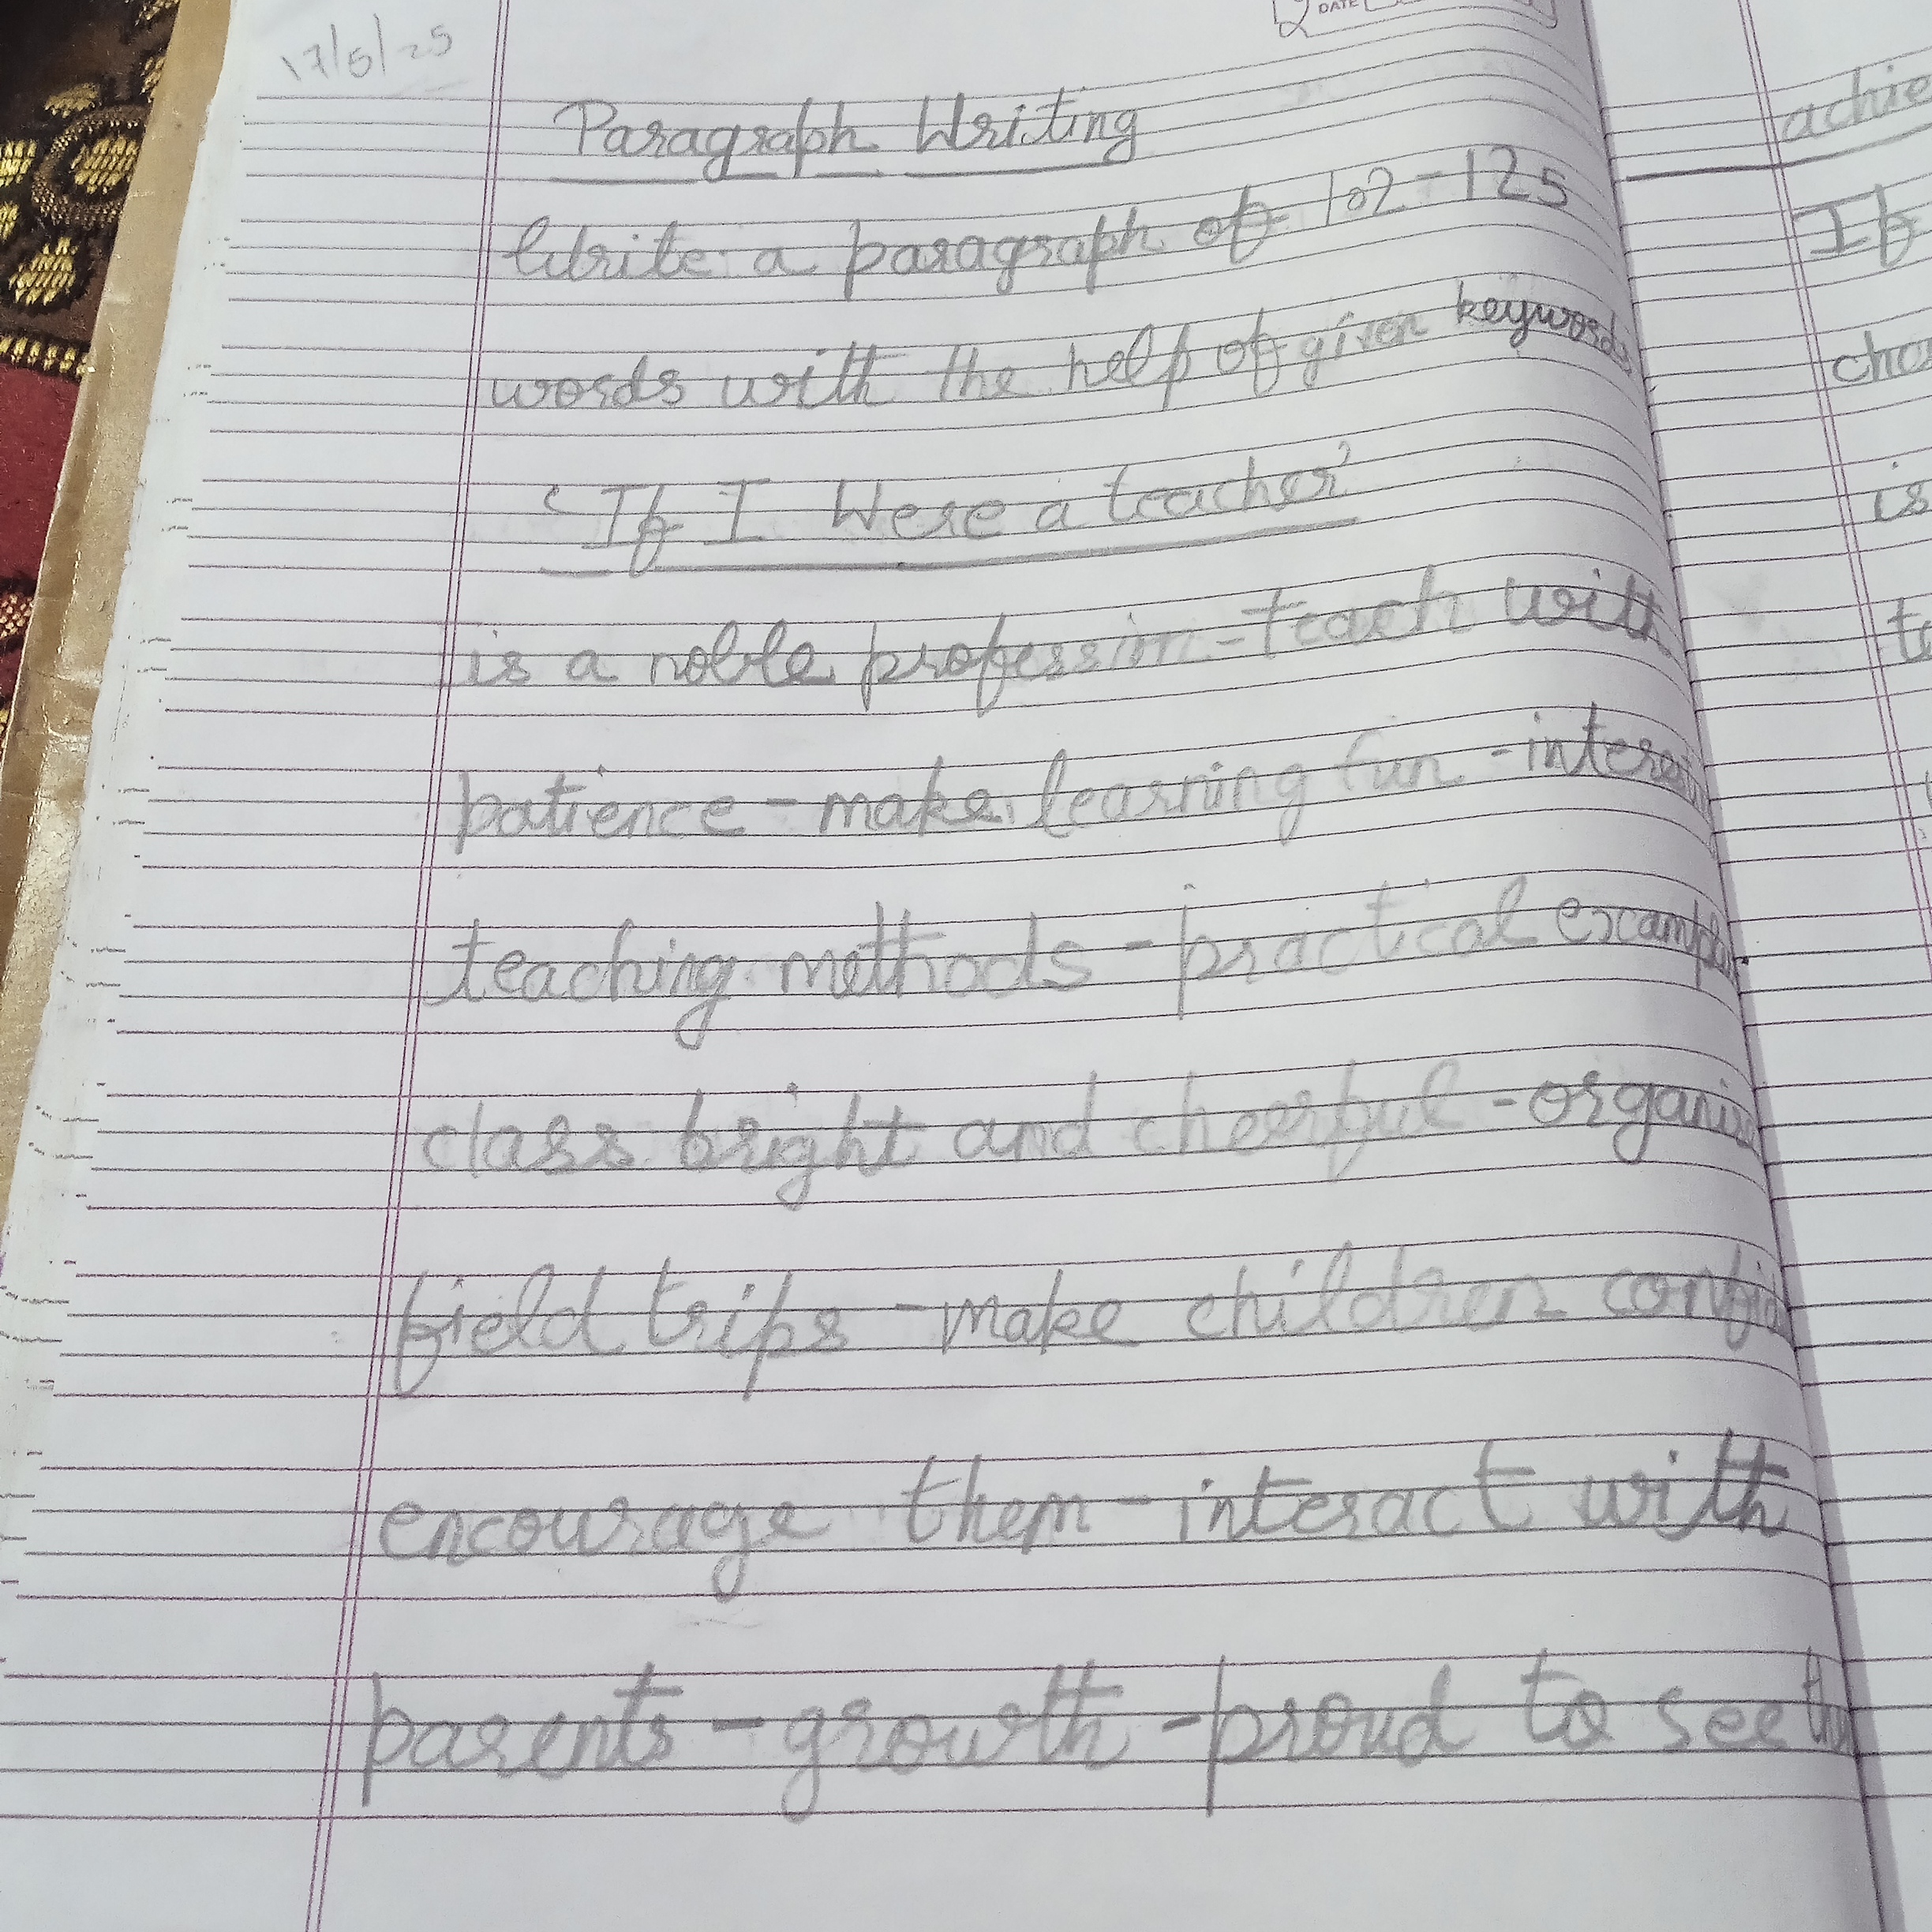 DATE
17/5/25
Paragraph Writing
Write a paragraph of 102-125
words with the help of given keywords
'If I Were a teacher'
is a noble profession-teach with
patience - make learning fun -
teaching methods - practical
class bright and cheerful -
field trips - make children
encourage them - interact with
parents - growth - proud to see
If
is